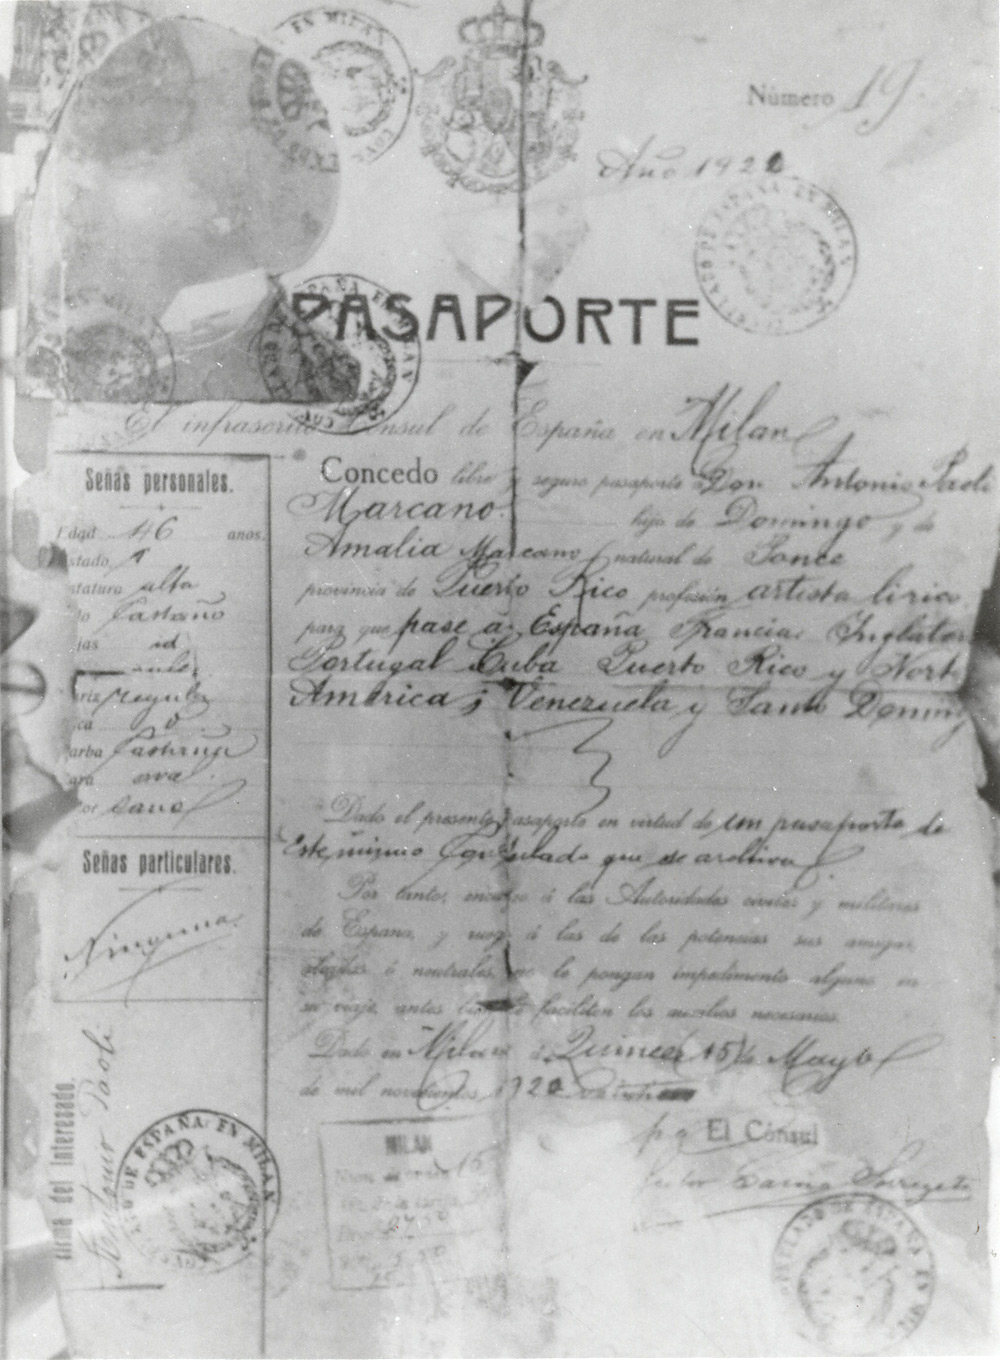 Número 19.
Año 1922
CONSULADO DE ESPAÑA EN MILAN
PASAPORTE
El infrascrito Consul de España en Milan
Concedo libre y seguro pasaporte a Don Antonio Paoli
Marcano. hijo de Domingo y de
Amalia Marcano natural de Ponce
provincia de Puerto Rico profesión artista lirico
para que pase á España Francia Inglater
Portugal Cuba Puerto Rico y Norte
América; Venezuela y Santo Doming
Dado el presente pasaporte en virtud de un pasaporte de
Este mismo Consulado que se archiva
Por tanto, encargo á las Autoridades civiles y militares
de España, y ruego á las de las potencias sus amigas,
aliadas ó neutrales, no le pongan impedimento alguno en
su viaje, antes bien le faciliten los auxilios necesarios.
Dado en Milan á Quince (15) de Mayo
de mil novecientos 1920
p. o El Cónsul
Señas personales.
Edad 46 anos.
Estado
statura alta
lo Castaño
jas id
riz regular
ca
arba Castaña
ara oval
or sano
Señas particulares.
Ninguna
Firma del interesado.
Antonio Paoli
CONSULADO DE ESPAÑA EN MILAN
MILAN
Núm. de orden 15
CONSULADO DE ESPAÑA EN MI